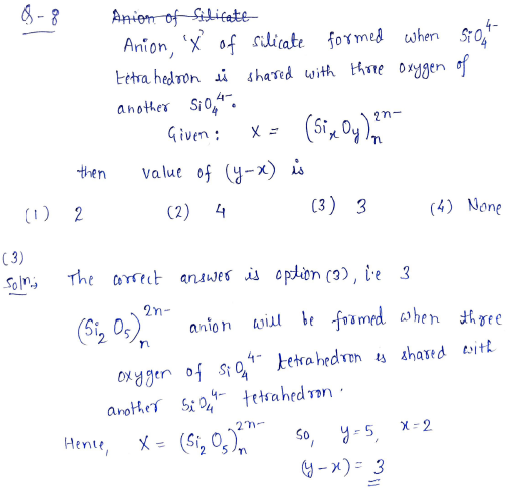 Q-8 Anion of Silicate
Anion, 'X' of silicate formed when SiO₄⁴⁻
tetrahedron is shared with three oxygen of
another SiO₄⁴⁻.
Given : X = (SiₓOy)ₙ²ⁿ⁻
then value of (y-x) is
(1) 2 (2) 4 (3) 3 (4) None
(3)
Soln; The correct answer is option (3), i.e 3
(Si₂O₅)ₙ²ⁿ⁻ anion will be formed when three
oxygen of SiO₄⁴⁻ tetrahedron is shared with
another SiO₄⁴⁻ tetrahedron.
Hence, X = (Si₂O₅)ₙ²ⁿ⁻ so, y=5, x=2
(y-x) = 3